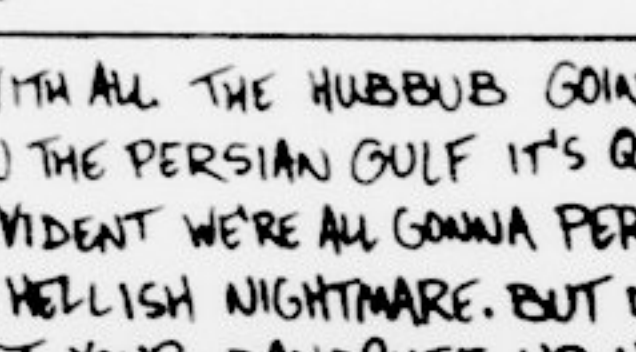 WITH ALL THE HUBBUB GOIN
THE PERSIAN GULF IT'S Q
VIDENT WE'RE ALL GONNA PER
HELLISH NIGHTMARE. BUT
YOUR